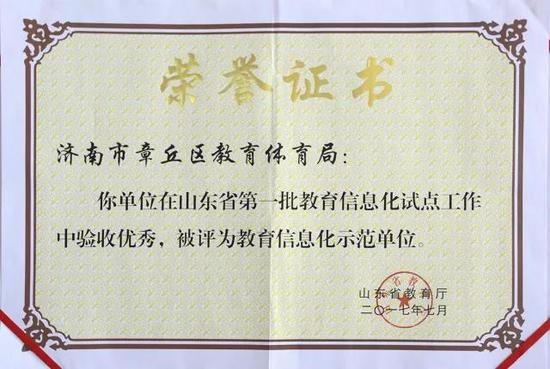 荣誉证书
济南市章丘区教育体育局：
你单位在山东省第一批教育信息化试点工作
中验收优秀，被评为教育信息化示范单位。
山东省教育厅
二〇一七年七月